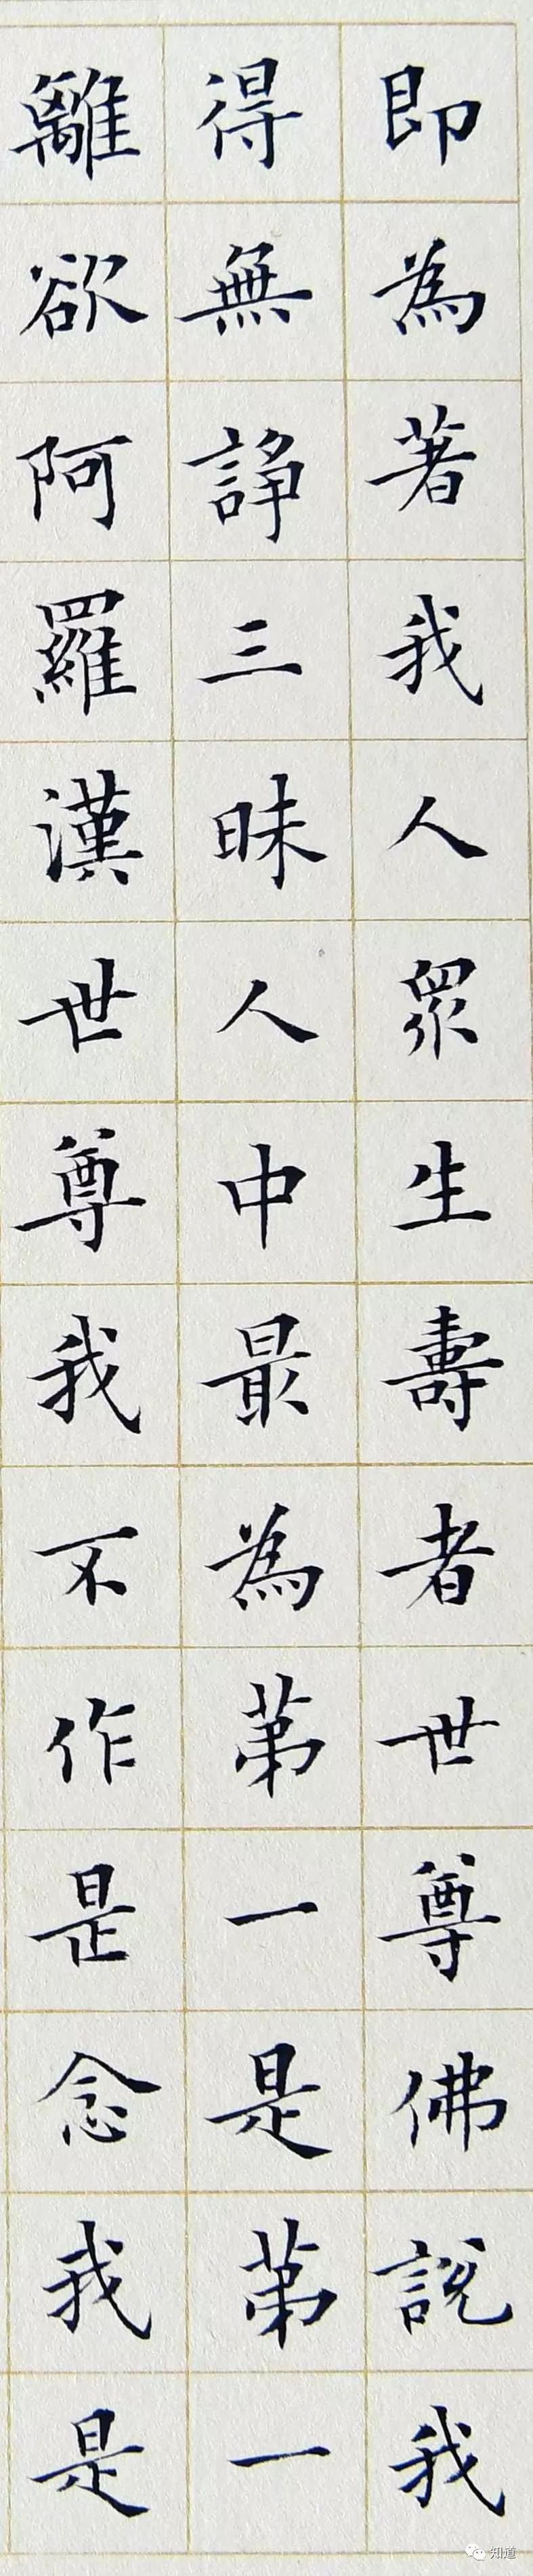 即為著我人眾生壽者世尊佛說我
得無諍三昧人中最為第一是第一
離欲阿羅漢世尊我不作是念我是
知道